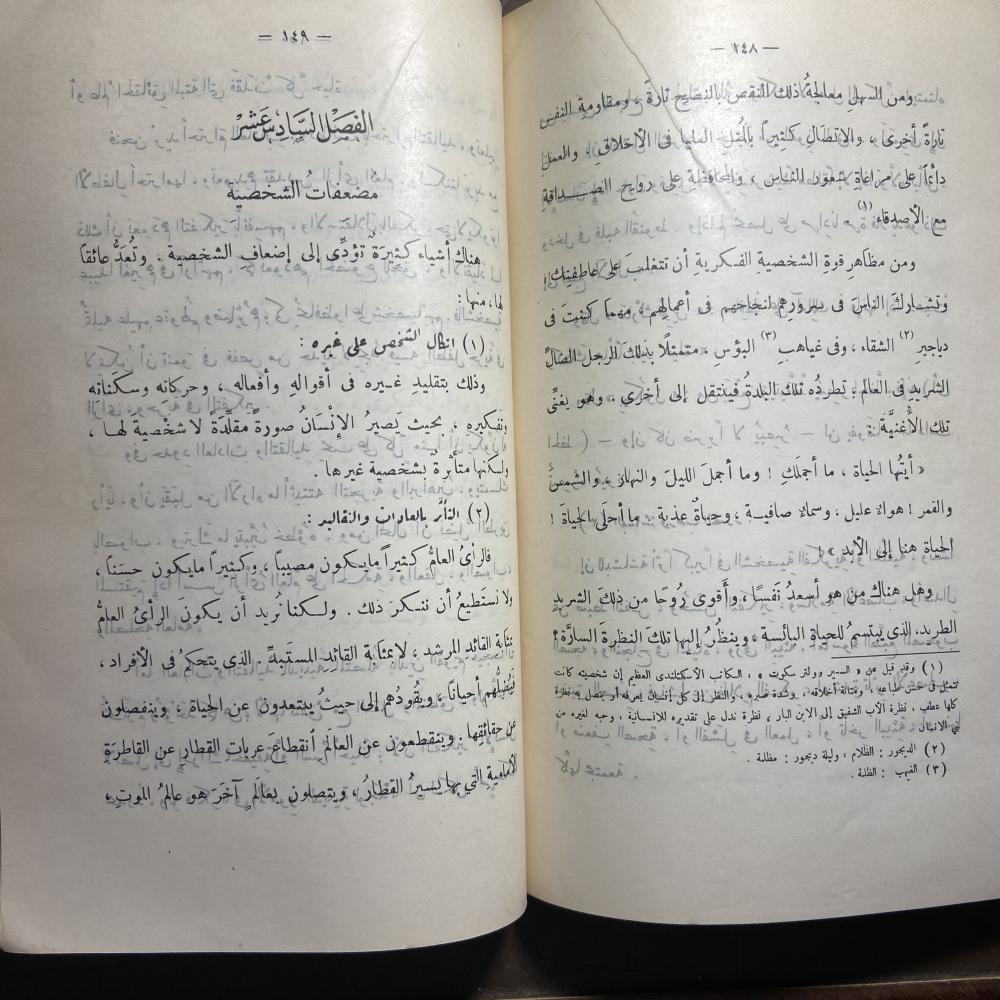 — ٢٤٨ —
ومن السهل معالجةُ ذلك النقص بالنصيح تارةً، ومقاومةِ النفس
تارةً أخرى، والاتصال كثيراً بالمُثل العليا فى الأخلاق، والعمل
دائماً على مراعاةِ شعور الناس، والمحافظة على روح الصداقةِ
مع الأصدقاء (١)
ومن مظاهرِ قوة الشخصية الفكرية أن تتغلب على عاطفيتك،
وتشارك الناسَ فى سرورهم لنجاحهم فى أعمالهم، مهما كنتَ فى
دياجير (٢) الشقاء، وفى غياهب (٣) البؤس، متمثلاً بذلك الرجل الضالِّ
الشريد فى العالم؛ تطردُه تلك البلدةُ فينتقل إلى أخرى، وهو يغنِّى
تلك الأُغنيَّة:
« أيتُها الحياة، ما أجملَكِ ! وما أجملَ الليلَ والنهارَ، والشمسَ
والقمر ! هواء عليل، وسماء صافيـة، وحياةٌ عذبة. ما أحلى الحياةَ !
الحياة هنا إلى الأبد » !
وهل هناك من هو أسعدُ نَفسًا، وأقوى رُوحًا من ذلك الشريد
الطريد، الذى يبتسم للحياةِ البائسة، وينظُرُ إليها تلكَ النظرةَ السارَّة؟
(١) وقد قيل عن « السير وولتر سكوت »، الكاتب الأسكتلندى العظيم إن شخصيته كانت
تتمثل فى حسن طباعه، ومتانة أخلاقه، وشدة صبره، والنظر إلى كل إنسان يعرفه أو يتصل به نظرة
كلها عطف، نظرة الأب الشفيق إلى الابن البار، نظرة تدل على تقديره للإنسانية، وحبه لغيره من
بنى الإنسان.
(٢) الديجور: الظلام، وليلة ديجور: مظلمة.
(٣) الغيهب: الظلمة.
— ١٤٩ —
الفصل السادس عشر
مضعفاتُ الشخصية
هناك أشياء كثيرَةٌ تؤدِّى إلى إضعافِ الشخصية، وتُعَدُّ عائقاً
لها، منها:
(١) اتكال الشخص على غيره:
وذلك بتقليدِ غيره فى أقوالهِ وأفعاله، وحركاته وسكَناته
وتفكيرهِ، بحيث يَصيرُ الإنْسَانُ صورةً مقلِّدةً لا شخْصية لهـا،
ولكنها متأثرةٌ بشخصية غيرها.
(٢) التأثر بالعادات والتقاليد:
فالرأىُ العامُّ كثيراً ما يكون مصيباً، وكثيراً ما يكون حسَناً،
ولا نستطيعُ أن ننكر ذلك. ولكنا نُريد أن يكونَ الرأىُ العامُّ
بمثابة القائد المرشد، لا بمثابة القائدِ المستبدّ. الذى يتحكمُ فى الأفراد،
فيُضلِّلُهم أحياناً، ويقُودُهم إلى حيثُ يبتعدون عن الحياة، وينفصلون
عن حقائقها. وينقطعون عن العالم أنقطاعَ عربات القطار عن القاطرَةِ
الأماميةِ التى بها يَسيرُ القطارُ، ويتصلون بعالَمٍ آخَرَ هو عالمُ الموتِ،